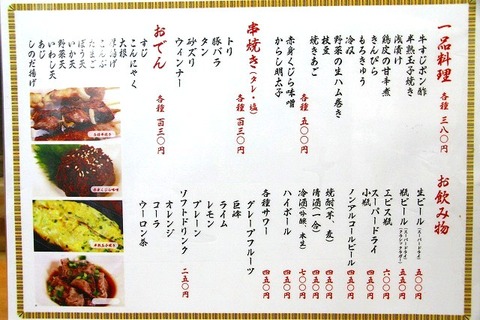 一品料理
各種 三八〇円
牛すじポン酢
半熟玉子焼き
浅漬け
鶏皮の甘辛煮
きんぴら
もろきゅう
冷奴
野菜の生ハム巻き
枝豆
焼きあご
各種 五〇〇円
赤身くじら味噌
からし明太子
串焼き(タレ・塩)
各種 百三〇円
トリ
豚バラ
タン
砂ズリ
ウィンナー
おでん
各種 百三〇円
すじ
こんにゃく
大根
厚揚げ
こんぶ
たまご
ぼう天
野菜天
いか天
いわし天
あじ
しのだ揚げ
お飲み物
生ビール(スーパードライ) 五〇〇円
瓶ビール(スーパードライ)(クラシックラガー) 五五〇円
エビス瓶 六〇〇円
スーパードライ小瓶 四五〇円
ノンアルコールビール 四五〇円
焼酎(芋、麦) 四五〇円
清酒(一合) 四五〇円
冷酒 七〇〇円
ハイボール 四五〇円
各種サワー 四五〇円
グレープフルーツ
巨峰
ライム
レモン
プレーン
ソフトドリンク 二五〇円
オレンジ
コーラ
ウーロン茶